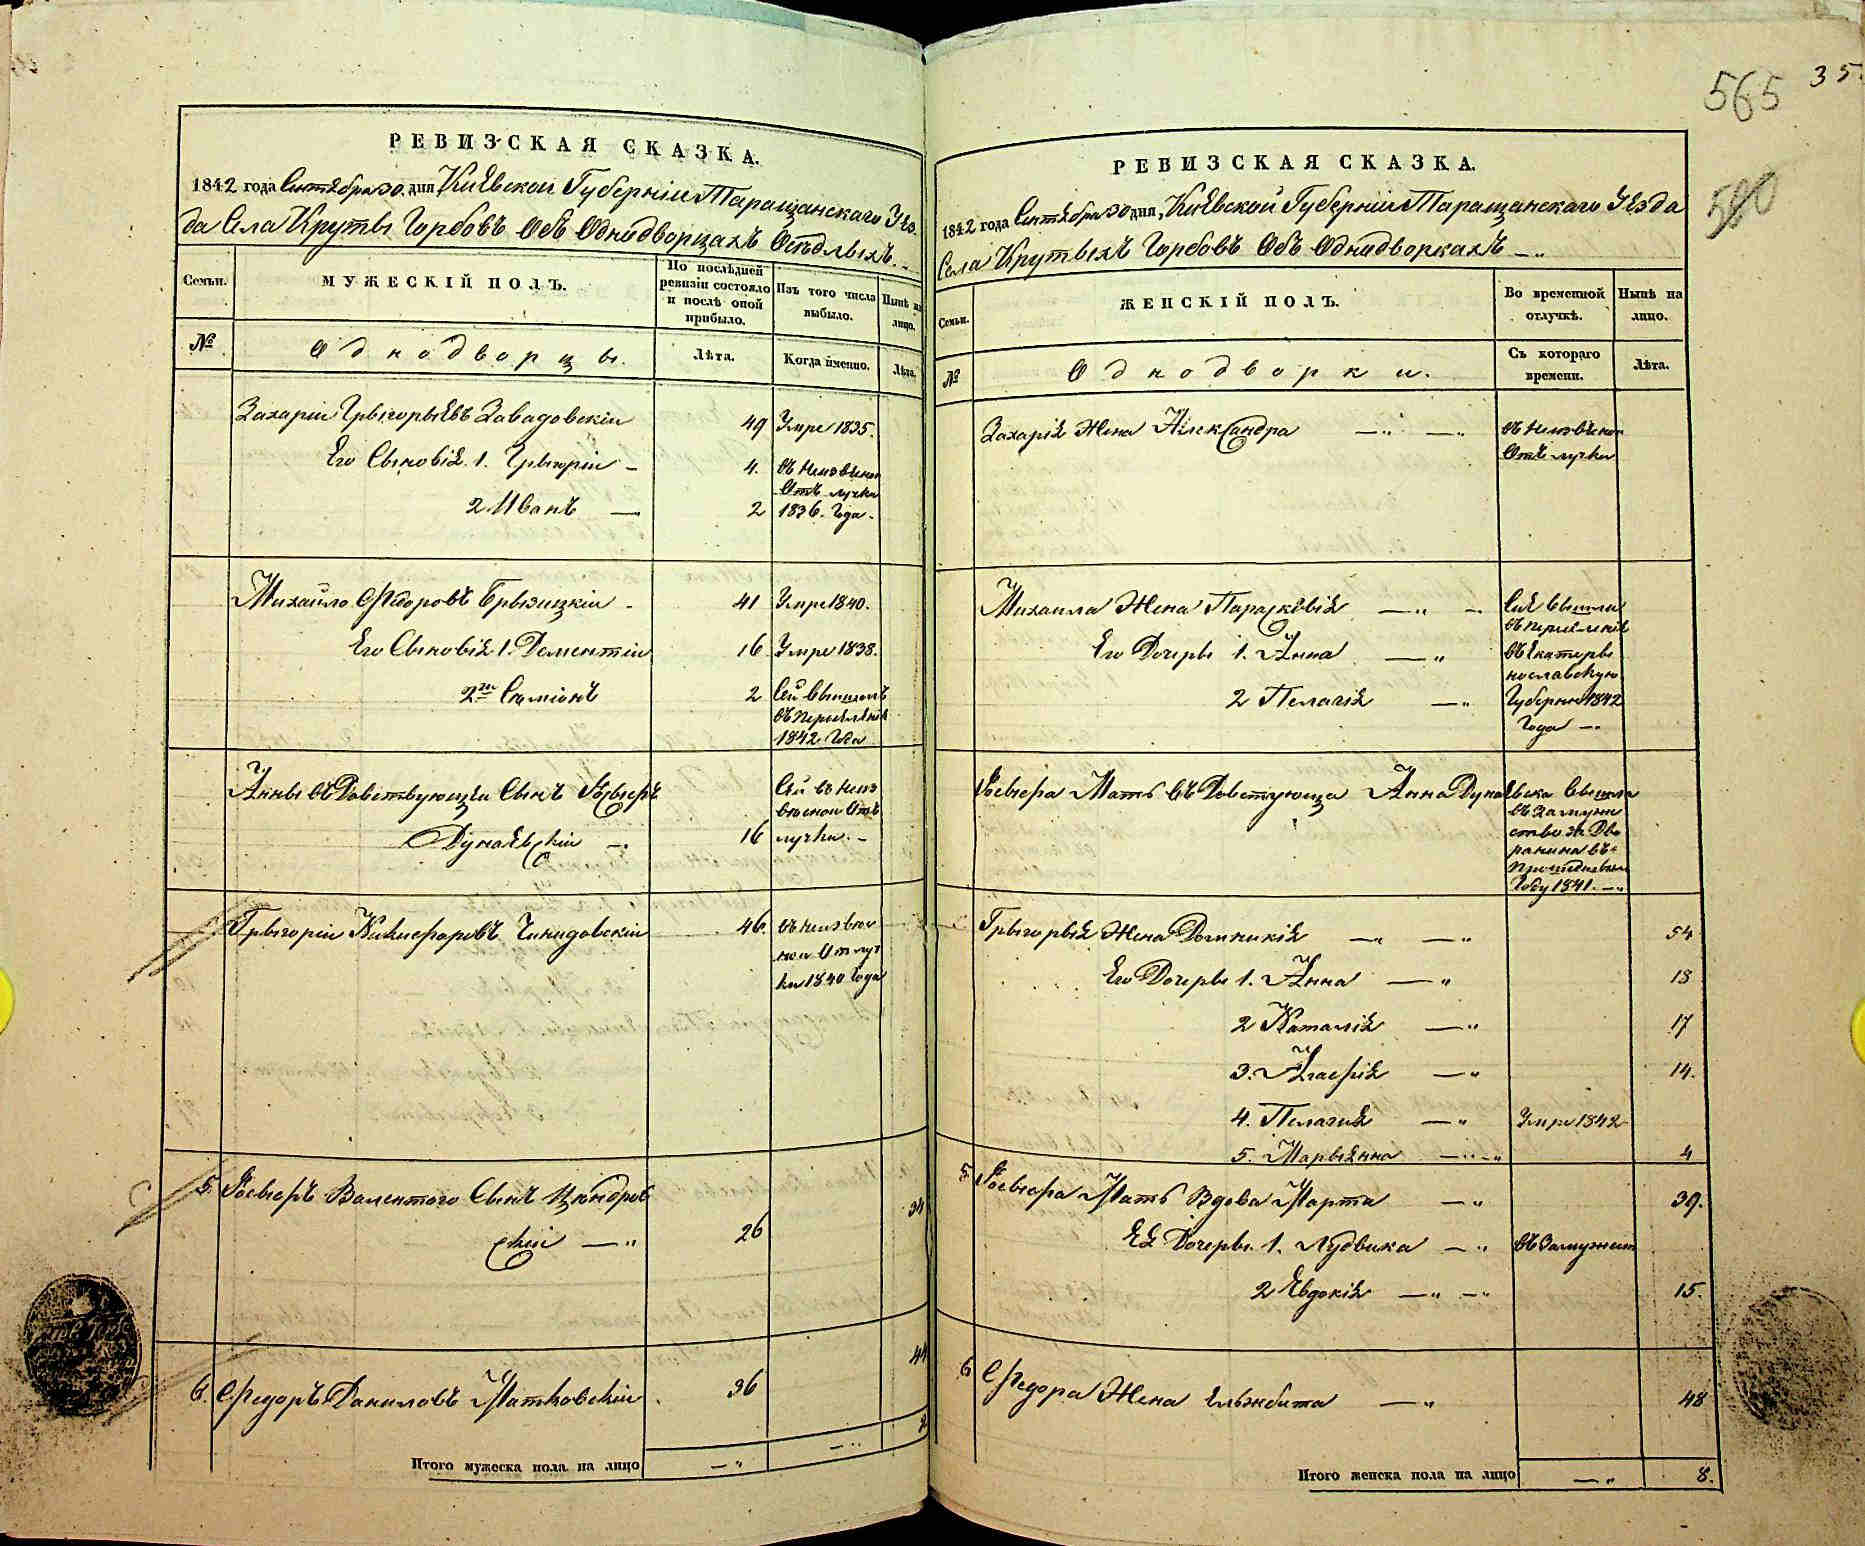 565 35.
580
РЕВИЗСКАЯ СКАЗКА.
1842 года Сентября 30 дня, Кіевской Губерніи Таращанскаго Уез
да Села Круты Горбовъ Объ Однодворцахъ Осѣдлыхъ.
Семьи.
МУЖЕСКІЙ ПОЛЪ.
По послѣдней
ревизіи состояло
и послѣ оной
прибыло.
Изъ того числа
выбыло.
Нынѣ на
лицо.
№
Однодворцы.
Лѣта.
Когда именно.
Лѣта.
Захаріи Грыгорыевъ Завадовскіи 49 Умре 1835.
Его Сыновія. 1. Грыгоріи 4. въ неизвѣсной
Отъ лучки
2 Иванъ 2 1836. Года
Михайло Федоровъ Брызицкіи 41 Умре 1840.
Его Сыновія 1. Дементіи 16 Умре 1838.
2й Сѣміонъ 2 Сей вышолъ
въ переселеніе
1842 Года
Анны въ Довствующеи Сынъ Ксаверъ Сей въ неиз
вѣсной Отъ
Дунаевскіи 16 лучки.
Грыгоріи Никифоровъ 46. въ неизвѣс
ной Отлуч
ки 1840 Года
5. Ксаверъ Валентого Сынъ Цындров
скіи 26 34
44
6. Федоръ Даниловъ Матковскіи 36
Итого мужеска пола на лицо
РЕВИЗСКАЯ СКАЗКА.
1842 года Сентября 30 дня, Кіевской Губерніи Таращанскаго Уезда
Села Крутыхъ Горбовъ Объ Однодворкахъ
Семьи.
ЖЕНСКІЙ ПОЛЪ.
Во временной
отлучкѣ.
Нынѣ на
лицо.
№
Однодворки.
Съ котораго
времени.
Лѣта.
Захарія Жена Александра въ неизвѣсной
Отъ лучки
Михаила Жена Парасковія Сия вышла
въ переселеніе
Его Дочеры 1. Анна въ Екатеры
нославскую
2 Пелагія Губернию 1842
Года
Ксавера Мать въ Довстующа Анна Дунаевска вышла
въ замуж
ство за Дво
ранина въ
Прошедшем
Году 1841.
Грыгорыя Жена Доминикія 54
Его Дочеры 1. Анна 18
2 Наталія 17
3. Агафія 14.
4. Пелагия Умре 1842
5. Марыянна 4
5. Ксавера Мать Вдова Марта 39.
Ея Дочеры. 1. Лудвика въ Замужест
2 Евдокія 15.
6 Федора Жена Ельжбита 48
Итого женска пола на лицо 8.